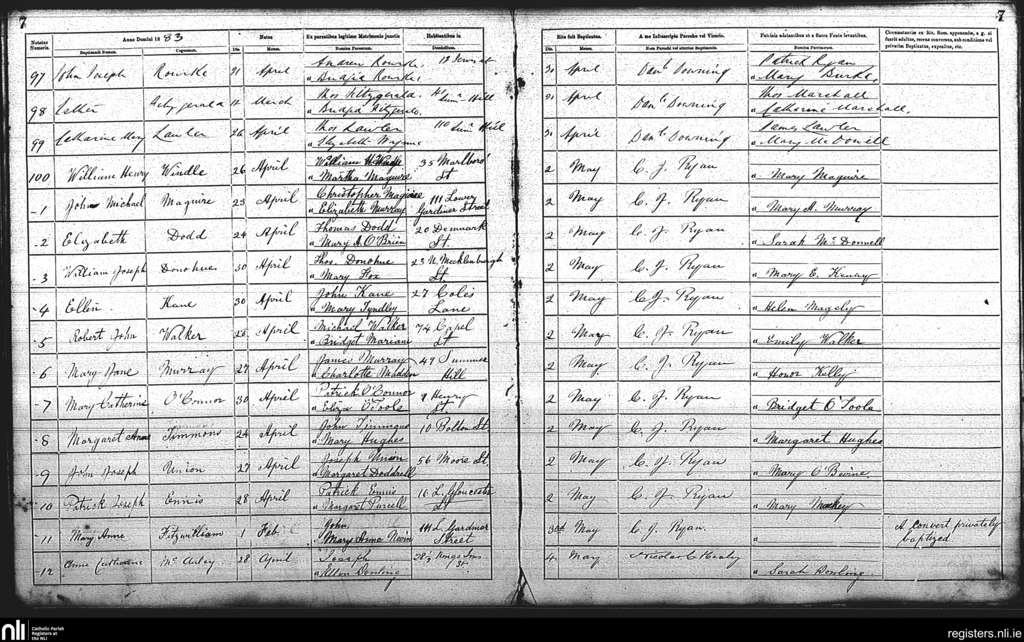 7
7
Anno Domini 1883
Natus
Ex parentibus legitimo Matrimonio junctis
Habitantibus in
Rite fuit Baptizatus.
A me Infrascripto Parocho vel Vicario.
Patrinis adstantibus et a Sacro Fonte levantibus.
Baptismale Nomen.
Cognomen.
Die.
Mense.
Nomina Parentum.
Domicilium.
Die.
Mense.
Nom Parochi vel alterius Baptizantis.
Nomina Patrinorum.
97 John Joseph Rourke 21 April Andrew Rourke
" Bridgid Rourke
April Danl. Downing Patrick Ryan
" Mary Burke
98 Esther Fitzgerald March Thos Fitzgerald
" Bridgid Fitzgerald Hill
April Danl. Downing Thos Marshall
" Catherine Marshall
99 Catharine Mary Lawler 26 April Thos Lawler 110 Sum Hill
" Elizabeth
April Danl. Downing James Lawler
" Mary McDowell
100 William Henry Windle 26 April William 35 Marlboro'
" Martha Maguire St
2 May C. J. Ryan
" Mary Maguire
-1 John Michael Maguire 23 April Christopher Maguire 111 Lower
" Elizabeth Murray Gardiner Street
2 May C. J. Ryan
" Mary A. Murray
-2 Elizabeth Dodd 24 April Thomas Dodd 20 Denmark
" Mary A O'Brien St.
2 May C. J. Ryan
" Sarah McDonnell
-3 William Joseph Donohue 30 April Thos. Donohue 23 N. Mecklenburgh
" Mary Fox St
2 May C. J. Ryan
" Mary E.
-4 Ellen Kane 30 April John Kane 27 Coles
" Mary Tyndley Lane
2 May C. J. Ryan
" Helen
-5 Robert John Walker 25 April Michael Walker 74 Capel
" Bridget St
2 May C. J. Ryan
" Emily Walker
-6 Mary Jane Murray 27 April James Murray 49 Summer
" Charlotte Madden Hill
2 May C. J. Ryan
" Honor
-7 Mary Catherine O'Connor 30 April Patrick O'Connor 9 Henry
" Eliza O'Toole St.
2 May C. J. Ryan
" Bridget O'Toole
-8 Margaret Anne Timmons 24 April John Timmons 10 Bolton St.
" Mary Hughes
2 May C. J. Ryan
" Margaret Hughes
-9 John Joseph Union 27 April Joseph Union 56 Moore St.
" Margaret
2 May C. J. Ryan
" Mary
-10 Patrick Joseph Ennis 28 April Patrick Ennis 16 L. Gloucester
" Margaret Purcell St
2 May C. J. Ryan
" Mary Mackey
-11 Mary Anne Fitzwilliam 1 Feb. John 111 L. Gardiner
" Mary Anne Street
3rd May C. J. Ryan.
"
A convert privately
baptized
-12 Anne Catherine McAuley 28 April Joseph Kings Inns
" Ellen Dowling St
4 May
" Sarah Dowling
nli
Catholic Parish
Registers at
the NLI
registers.nli.ie